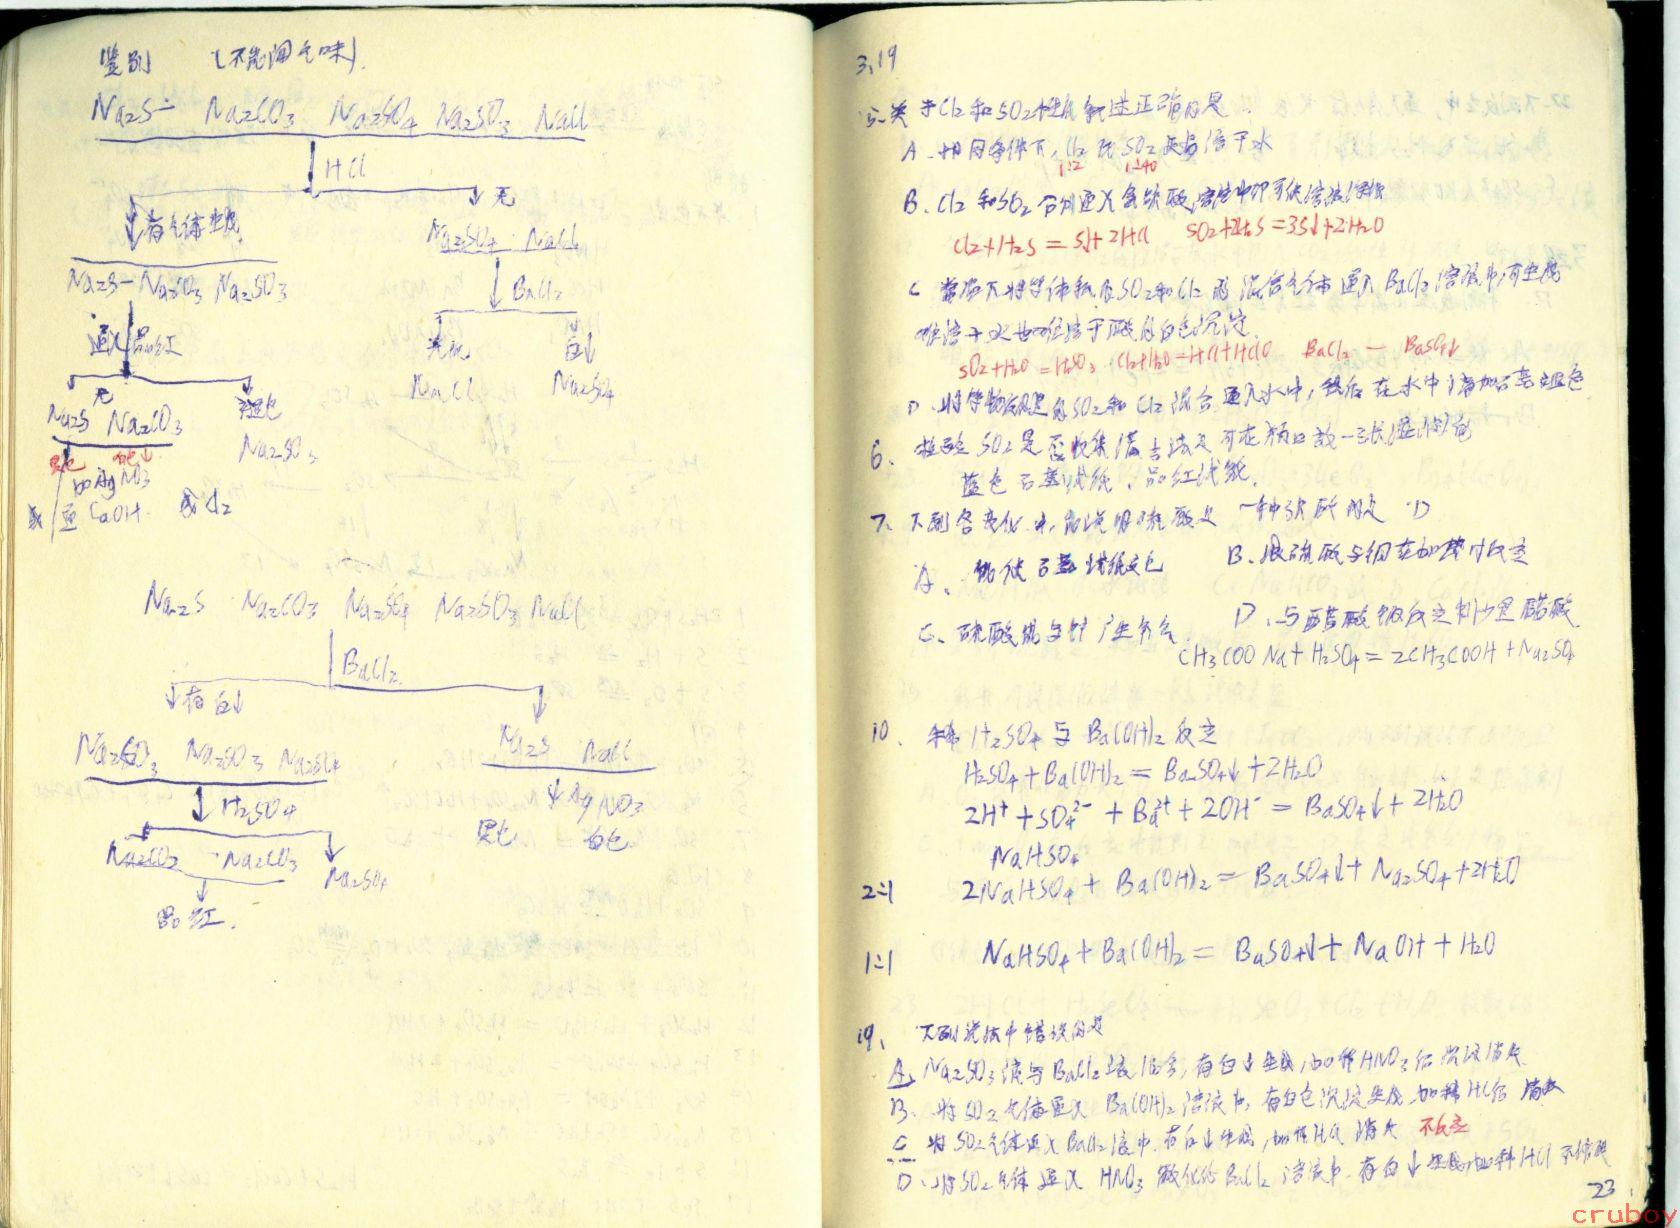 鉴别 (不能闻气味).
Na₂S Na₂CO₃ Na₂SO₄ Na₂SO₃ NaCl
↓ HCl
↓有气体生成 ↓ 无
Na₂S Na₂CO₃ Na₂SO₃ Na₂SO₄ NaCl
通入品红 ↓ BaCl₂
无 无现 白↓
Na₂S Na₂CO₃ NaCl Na₂SO₄
Na₂SO₃
黑色 白色↓
加AgNO₃
或 通 CaOH 或Cl₂
Na₂S Na₂CO₃ Na₂SO₄ Na₂SO₃ NaCl
BaCl₂
↓有白↓ ↓
Na₂CO₃ Na₂SO₃ Na₂SO₄ Na₂S NaCl
↓H₂SO₄ ↓AgNO₃
黑色 白色
Na₂CO₃ Na₂CO₃ Na₂SO₄
↓
品红.
3.19
5.关于Cl₂和SO₂性质叙述正确的是
A.相同条件下,Cl₂比SO₂更易溶于水
1:2 1:40
B.Cl₂和SO₂分别通入氢硫酸,溶液
Cl₂+H₂S=S↓+2HCl SO₂+2H₂S=3S↓+2H₂O
C 常温下将等体积的SO₂和Cl₂的混合气体通入BaCl₂溶液中,可生成
难溶于水也难溶于酸的白色沉淀.
SO₂+H₂O=H₂SO₃ Cl₂+H₂O=HCl+HClO BaCl₂ — BaSO₄↓
D.将等物质量的SO₂和Cl₂混合通入水中,然后在水中滴加石蕊
6.检验SO₂是否收集满方法是可在瓶口放一张湿润的
蓝色石蕊试纸、品红试纸.
7.下列各变化中,能说明硫酸是一种强酸的是 D
A.能使石蕊试纸变色 B.浓硫酸与铜在加热时反应
C.稀硫酸与锌产生氢气 D.与醋酸钠反应制少量醋酸
CH₃COONa+H₂SO₄=2CH₃COOH+Na₂SO₄
10.稀H₂SO₄与Ba(OH)₂反应
H₂SO₄+Ba(OH)₂=BaSO₄↓+2H₂O
2H⁺+SO₄²⁻+Ba²⁺+2OH⁻=BaSO₄↓+2H₂O
NaHSO₄
2:1 2NaHSO₄+Ba(OH)₂=BaSO₄↓+Na₂SO₄+2H₂O
1:1 NaHSO₄+Ba(OH)₂=BaSO₄↓+NaOH+H₂O
19.下列说法中错误的是
A.Na₂SO₃液与BaCl₂液混合,有白↓生成,加稀HNO₃后沉淀消失
B.将SO₂气体通入Ba(OH)₂溶液中,有白色沉淀生成,加稀HCl后消失
C 将SO₂气体通入BaCl₂液中,有白↓生成,加稀HCl消失 不反应
D.将SO₂气体通入HNO₃酸化的BaCl₂溶液中,有白↓生成,加稀HCl不消失
23
cruboy